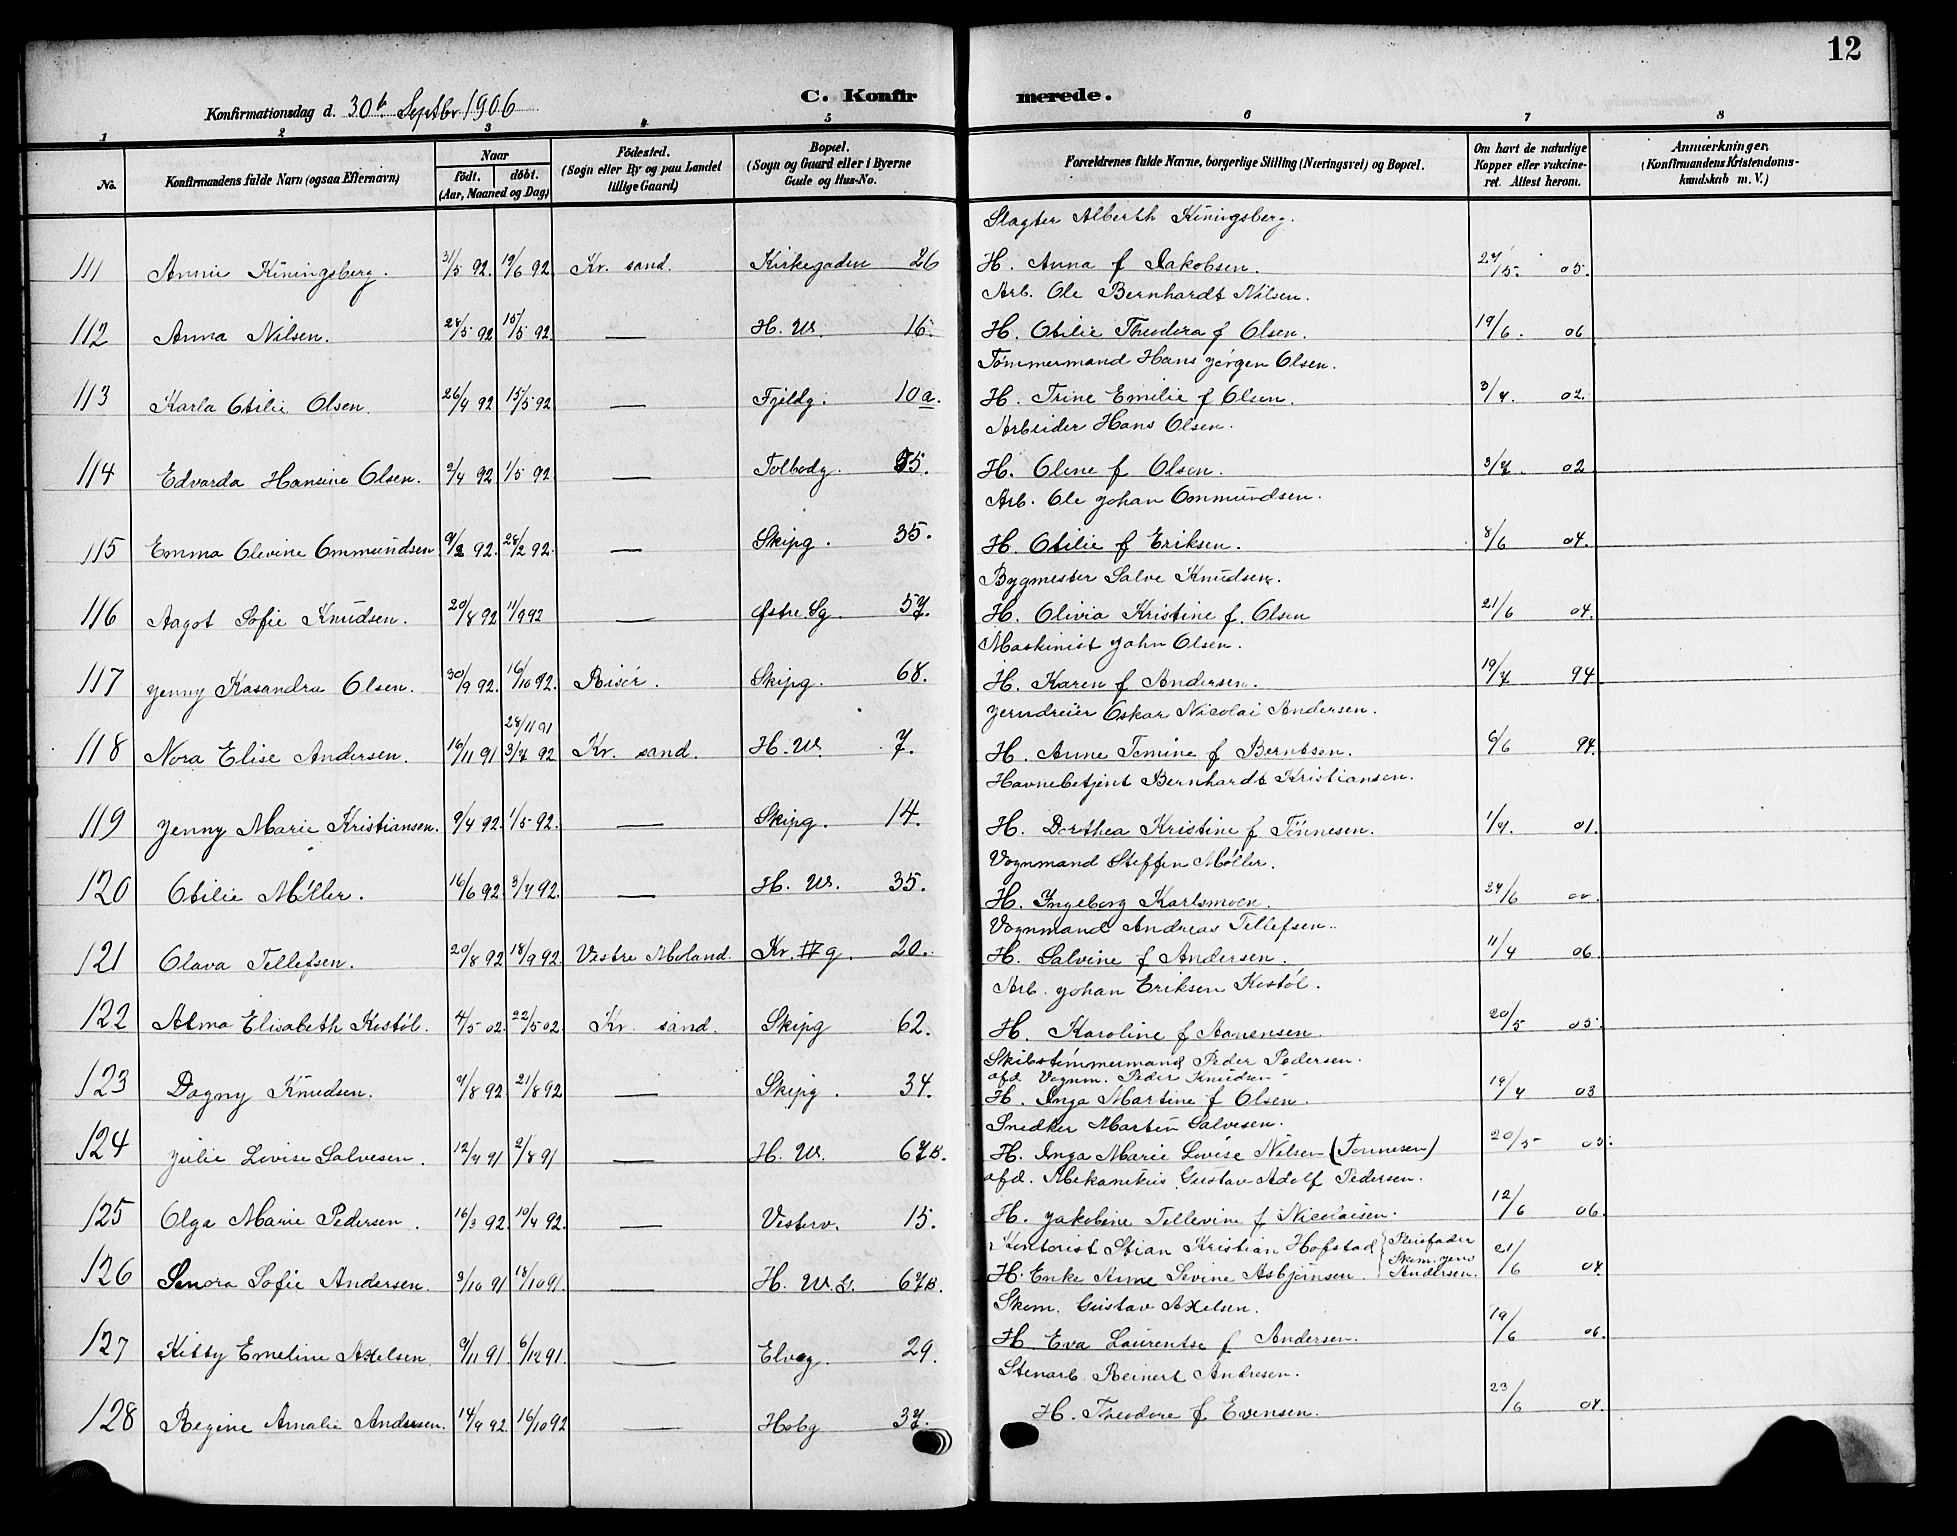 12
C. Konfirmerede.
Konfirmationsdag d. 30te Septbr 1906
1 2 3 4 5 6 7 8
No. Konfirmandens fulde Navn (ogsaa Efternavn) Naar født. døbt. (Aar, Maaned og Dag) Fødested. (Sogn eller By og paa Landet tillige Gaard) Bopæl. (Sogn og Gaard eller i Byerne Gade og Hus-No. Forældrenes fulde Navne, borgerlige Stilling (Næringsvei) og Bopæl. Om havt de naturlige Kopper eller vakcineret. Attest herom. Anmærkninger, (Konfirmandens Kristendomskundskab m. V.)
Slagter Alberth Kiningsberg.
111 Annie Kiningsberg. 31/5 92. 19/6 92 Kr. sand. Kirkegaden 26 H. Anna f Jakobsen. 27/5. 05.
Arb. Ole Bernhardt Nilsen.
112 Anna Nilsen. 28/5 92 15/5 92. — H. W. 16. H. Otilie Theodora f Olsen. 19/6. 06
Tømmermand Hans Jørgen Olsen.
113 Karla Otilie Olsen. 26/4 92 15/5 92 — Fjeldg. 10a. H. Trine Emilie f Olsen. 3/7. 02.
Arbeider Hans Olsen.
114 Edvarda Hansine Olsen. 2/4 92 1/5 92 — Tolbodg. 35. H. Oline f Olsen. 3/7. 02
Arb. Ole Johan Ommundsen.
115 Emma Olevine Ommundsen 9/2 92. 28/2 92. — Skipg. 35. H. Otilie f Eriksen. 8/6 04.
Bygmester Salve Knudsen.
116 Aagot Sofie Knudsen. 20/8 92 11/9 92 — Østre Sg. 57. H. Olivia Kristine f. Olsen 21/6 04.
Maskinist John Olsen.
117 Jenny Kasandra Olsen. 30/9 92. 16/10 92. Risør. Skipg. 68. H. Karen f Andersen. 19/7 94
28/11 91 Jerndreier Oskar Nicolai Andersen.
118 Nora Elise Andersen. 16/11 91 3/7 92 Kr. sand. H. W. 7. H. Anne Tomine f Berntsen. 6/6 94.
Havnebetjent Bernhardt Kristiansen.
119 Jenny Marie Kristiansen. 9/4 92. 1/5 92. — Skipg. 14. H. Dorthea Kristine f Tønnesen. 1/7. 01.
Vognmand Steffen Møller.
120 Otilie Møller. 16/6 92. 3/7 92. — H. W. 35. H. Ingeborg Karlsmoen. 27/6 00.
Vognmand Andreas Tellefsen.
121 Olava Tellefsen. 20/8 92 18/9 92. Vestre Moland. Kr. IV g. 20. H. Salvine f Andersen. 11/4 06.
Arb. Johan Eriksen Kostøl.
122 Alma Elisabeth Kostøl. 4/5 02. 22/5 02. Kr. sand. Skipg 62. H. Karoline f Aanensen. 20/5 05.
Skibstømmermand Peder Pedersen.
afd. Vognm. Peder Knudsen
123 Dagny Knudsen. 9/8 92. 21/8 92 — Skipg. 34. H. Inga Martine f Olsen. 19/4 03
Snedker Martin Salvesen.
124 Julie Lovise Salvesen. 12/7 91 2/8 91 — H. W. 67B. H. Inga Marie Lovise Nilsen (Tønnesen) 20/5 05.
afd. Mekanikus Gustav Adolf Pedersen.
125 Olga Marie Pedersen. 16/3 92. 10/4 92. — Vesterv. 15. H. Jakobine Tellevine f Nicolaisen. 12/6 06.
Kontorist Stian Kristian Hofstad Pleiefader
126 Senora Sofie Andersen. 3/10 91 18/10 91. — H. W. G. 67B. H. Enke Anne Sevine Asbjørnsen. Skom. Jens Andersen. 21/6 04.
Skom. Gustav Axelsen.
127 Kitty Emeline Axelsen. 9/11 91 6/12 91. — Elveg. 29. H. Eva Laurentse f Andersen. 19/6 06.
Stenarb. Reinert Andresen.
128 Regine Amalie Andersen. 14/9 92. 16/10 92 — Hobg 37. H. Theodore f Evensen. 23/6 04.